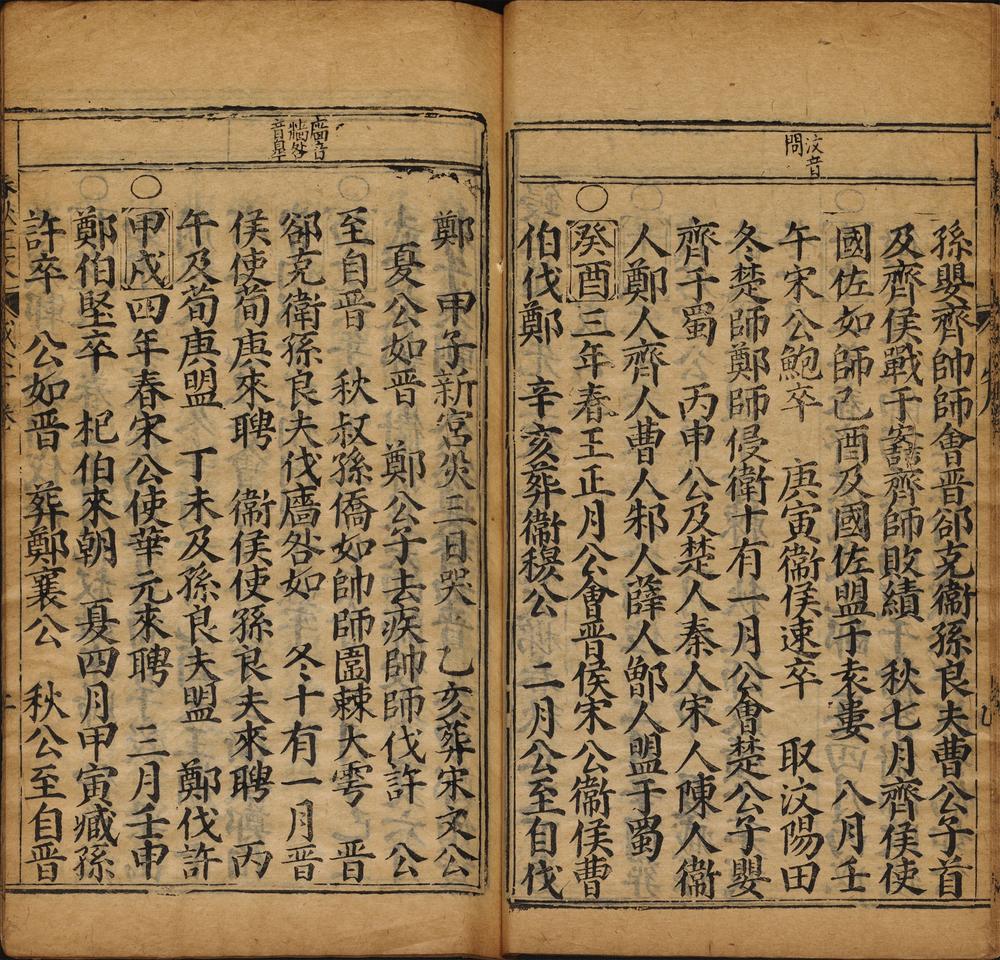 汶音
問
孫嬰齊帥師會晉郤克衞孫良夫曹公子首
及齊侯戰于鞌齊師敗績 秋七月齊侯使
國佐如師己酉及國佐盟于袁婁 八月壬
午宋公鮑卒 庚寅衞侯速卒 取汶陽田
冬楚師鄭師侵衛十有一月公會楚公子嬰
齊于蜀 丙申公及楚人秦人宋人陳人衞
人鄭人齊人曹人邾人薛人鄫人盟于蜀
○癸酉三年春王正月公會晉侯宋公衞侯曹
伯伐鄭 辛亥葬衞穆公 二月公至自伐
廧音
牆咎
音臯
鄭 甲子新宮災三日哭 乙亥葬宋文公
夏公如晉 鄭公子去疾帥師伐許 公
至自晉 秋叔孫僑如帥師圍棘大雩 晉
郤克衛孫良夫伐廧咎如 冬十有一月晉
侯使荀庚來聘 衞侯使孫良夫來聘 丙
午及荀庚盟 丁未及孫良夫盟 鄭伐許
○甲戌四年春宋公使華元來聘 三月壬申
鄭伯堅卒 杞伯來朝 夏四月甲寅臧孫
許卒 公如晉 葬鄭襄公 秋公至自晉